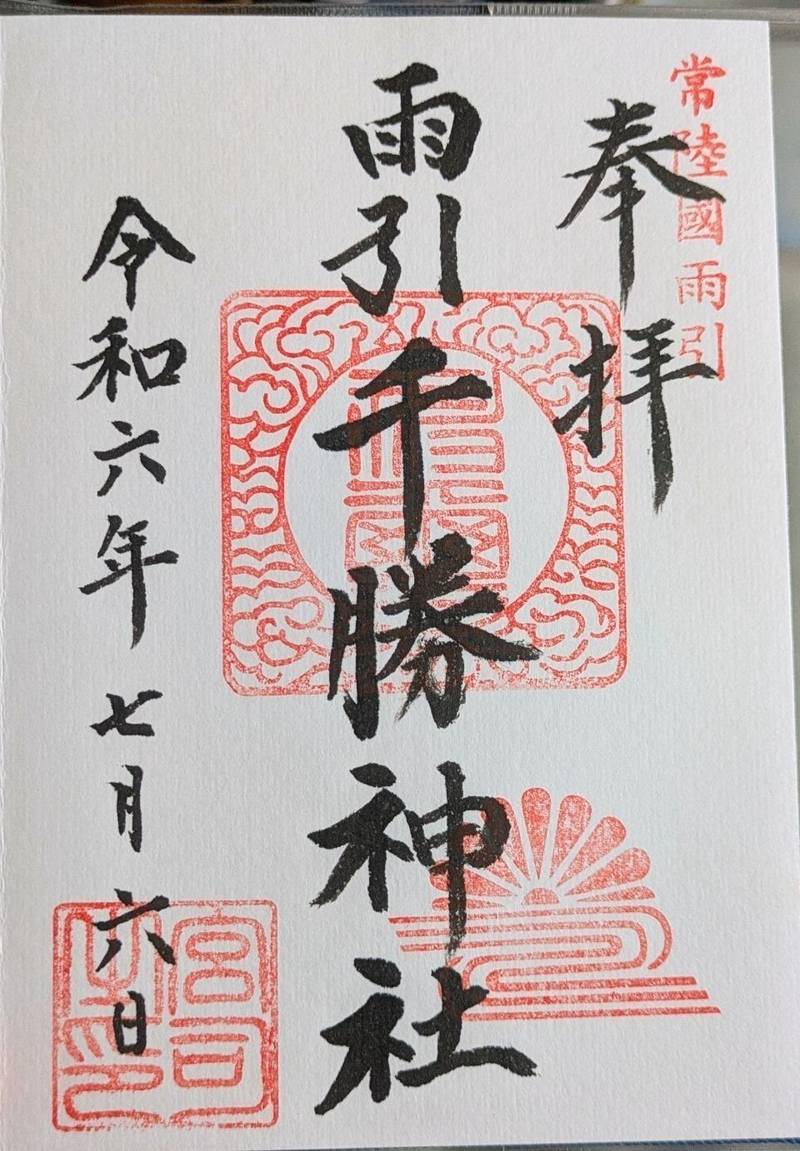 常陸國雨引
奉拝
雨引千勝神社
令和六年七月六日
宮司之印